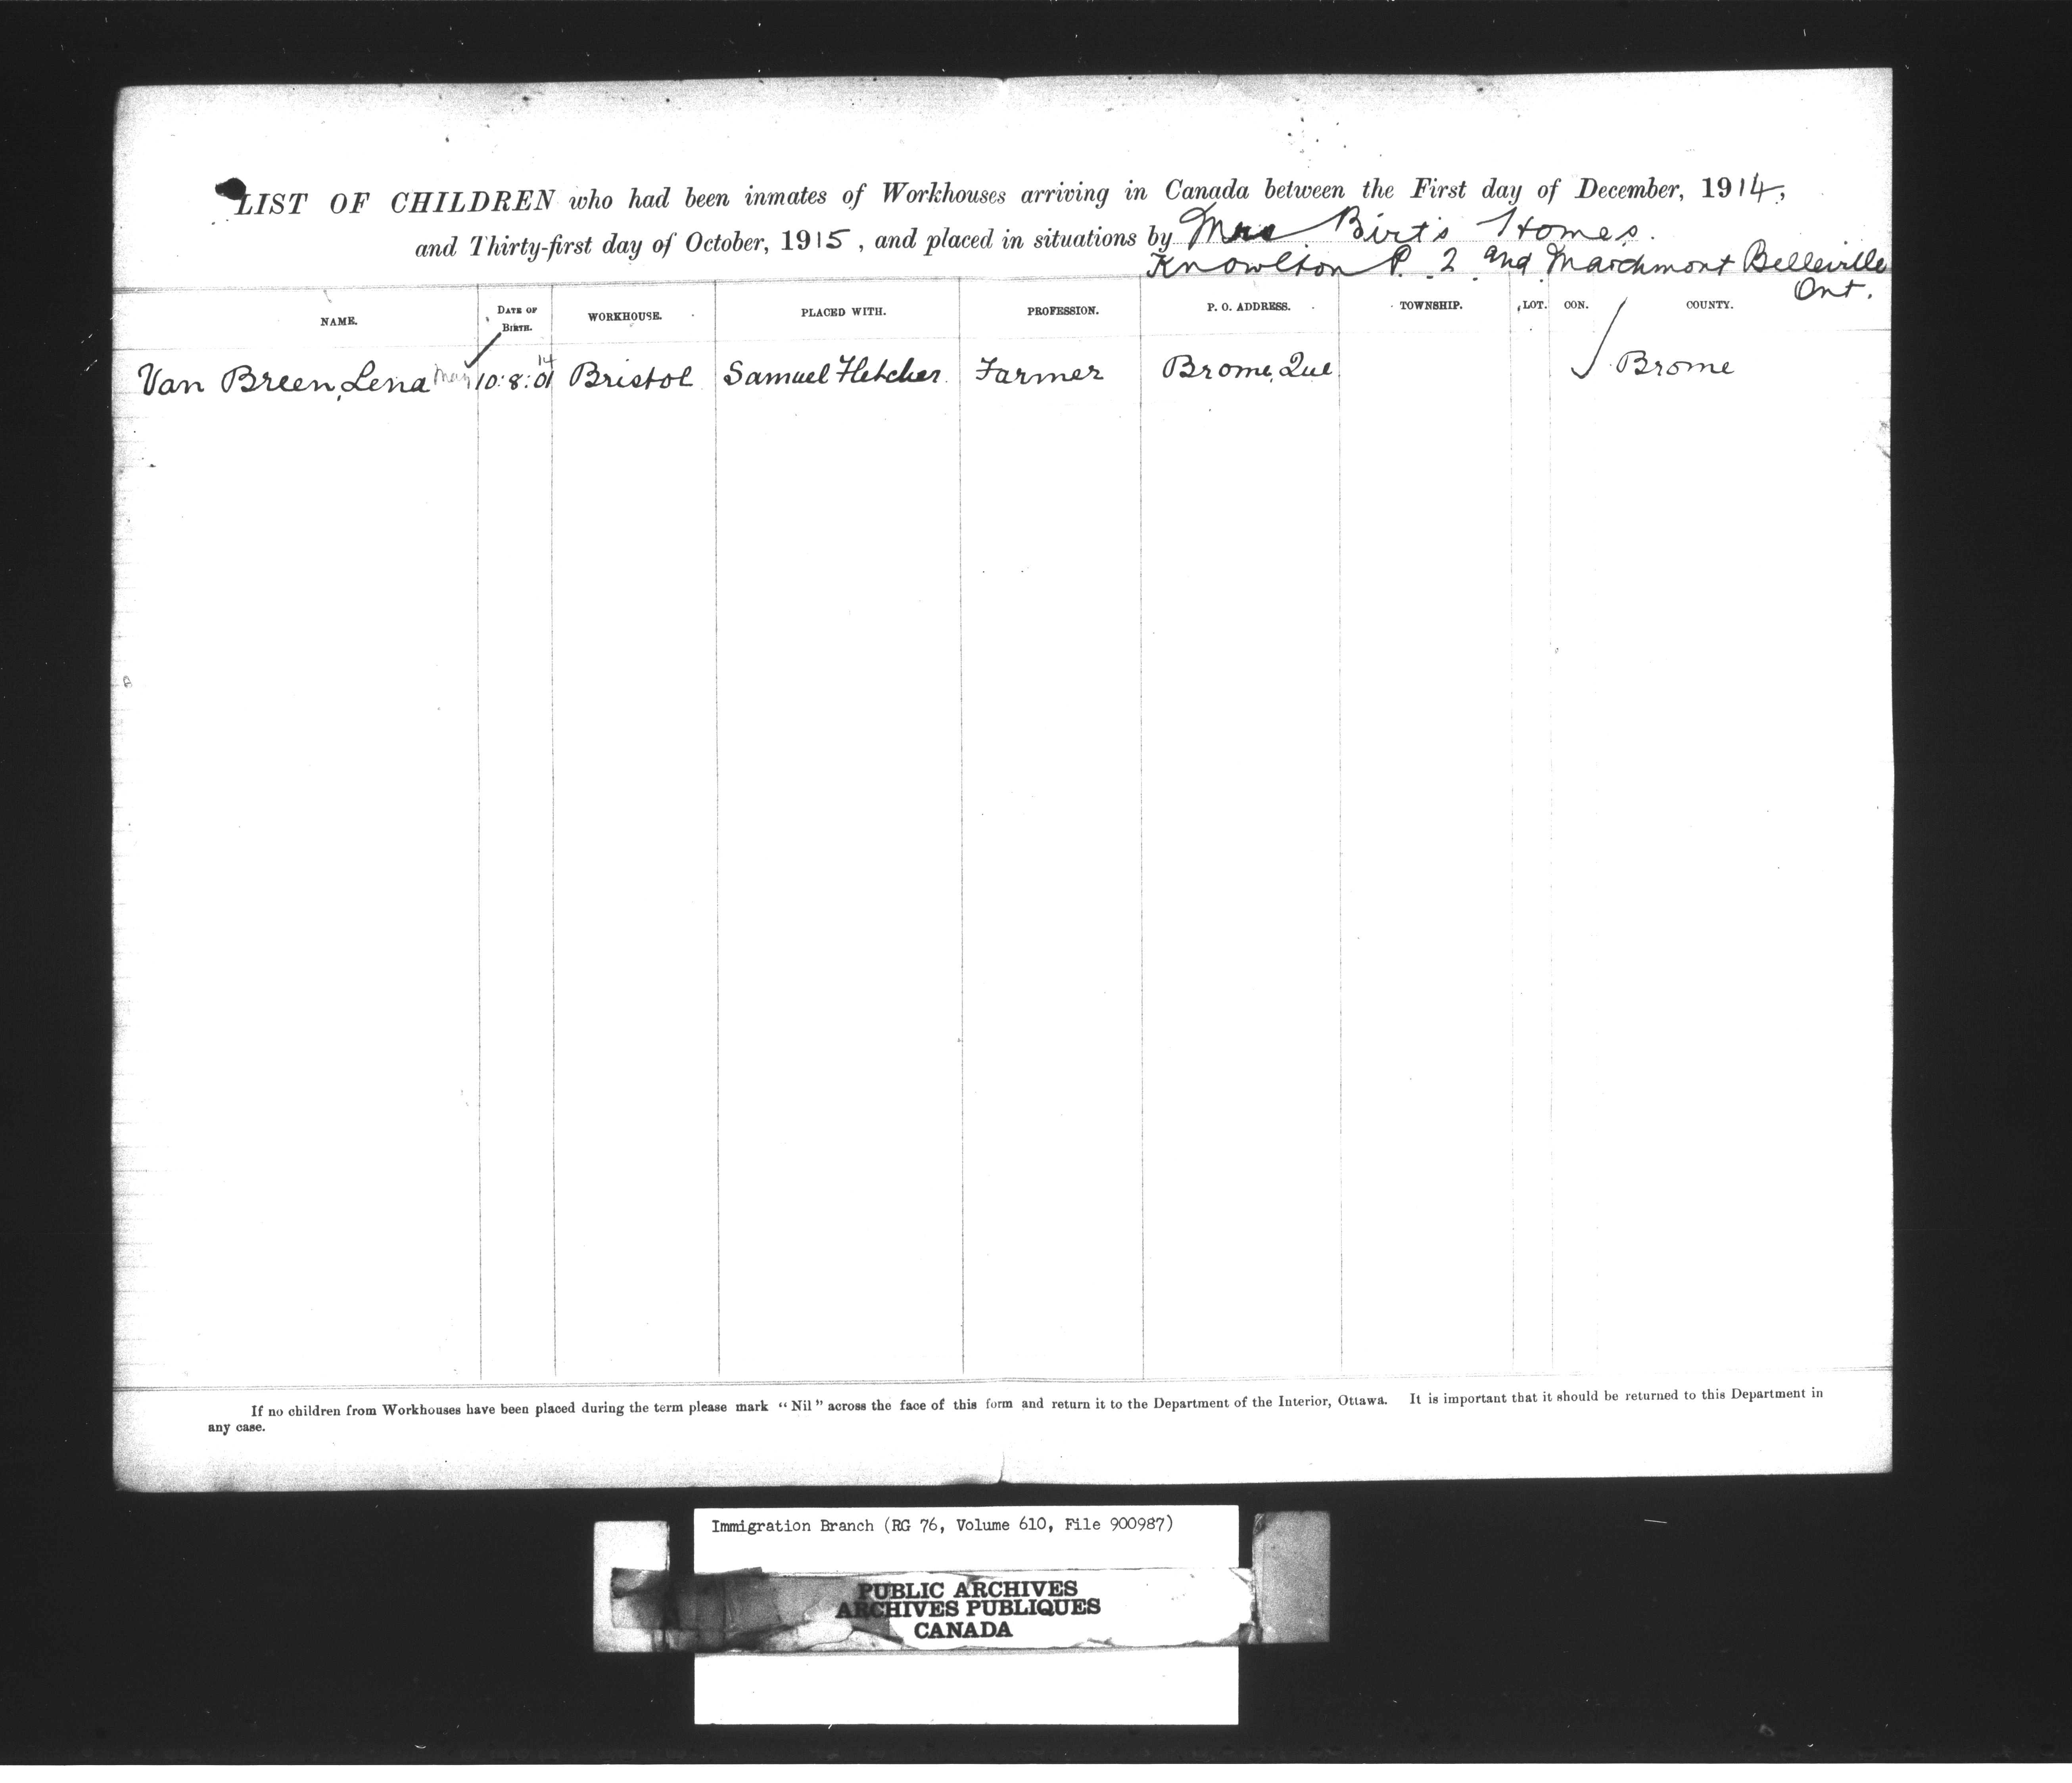 LIST OF CHILDREN who had been inmates of Workhouses arriving in Canada between the First day of December, 1914,
and Thirty-first day of October, 1915, and placed in situations by Mrs Birt's Homes.
Knowlton P. 2 and Marchmont Belleville
Ont.
NAME. DATE OF BIRTH. WORKHOUSE. PLACED WITH. PROFESSION. P. O. ADDRESS. TOWNSHIP. LOT. CON. COUNTY.
14
Van Breen, Lena May 10:8:01 Bristol Samuel Fletcher. Farmer Brome, Que Brome
If no children from Workhouses have been placed during the term please mark "Nil" across the face of this form and return it to the Department of the Interior, Ottawa. It is important that it should be returned to this Department in
any case.
Immigration Branch (RG 76, Volume 610, File 900987)
PUBLIC ARCHIVES
ARCHIVES PUBLIQUES
CANADA